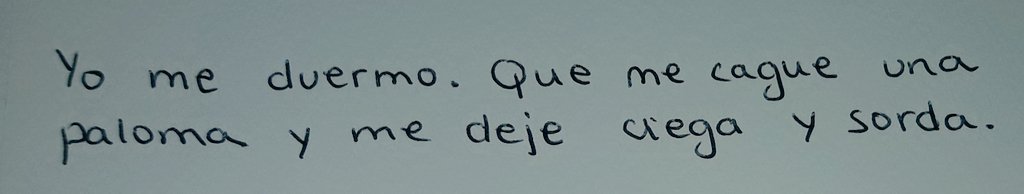 Yo me duermo. Que me cague una
paloma y me deje ciega y sorda.